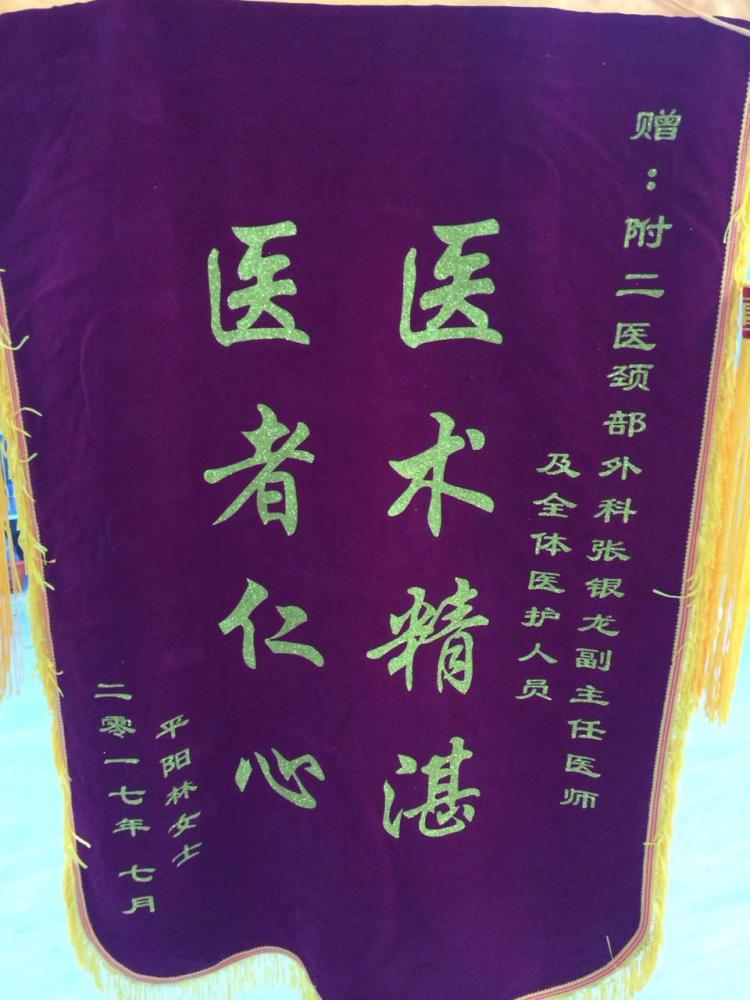 赠：附二医颈部外科张银龙副主任医师
及全体医护人员
医术精湛
医者仁心
平阳林女士
二零一七年七月